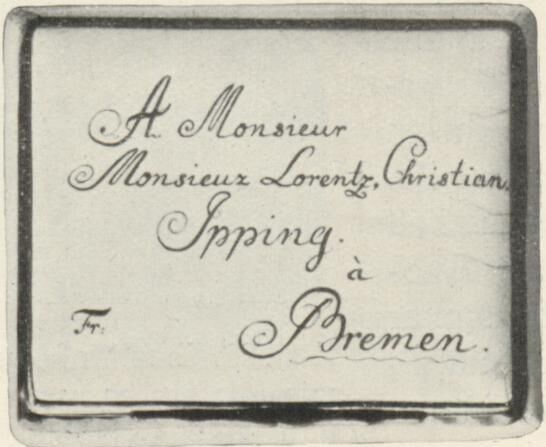 A Monsieur
Monsieur Lorentz, Christian,
Ipping.
à
Bremen.
Fr: